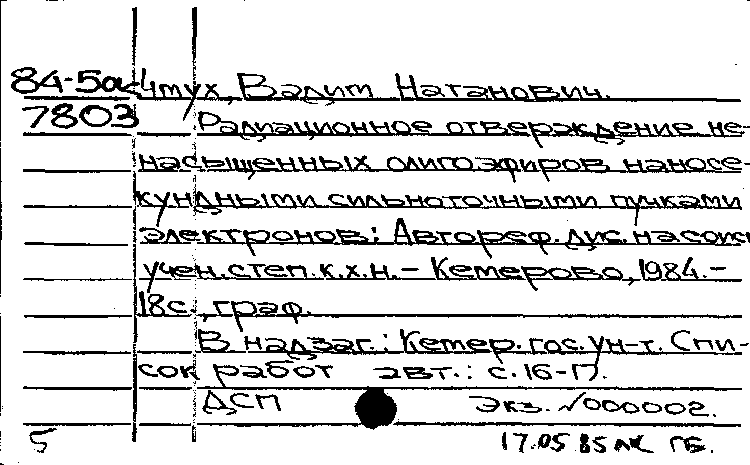 84-5а Чтух, Вадим Натанович.
7803 Радиационное отверждение не-
насыщенных олигоэфиров наносе-
кундными сильноточными пучками
электронов: Автореф. дис. на соиск.
учен. степ. к.х.н. – Кемерово, 1984. –
18с., граф.
В надзаг.: Кемер. гос. ун-т. Спи-
сок работ авт.: с. 16-17.
ДСП Экз. №000002.
5 17.05 85 ГБ.